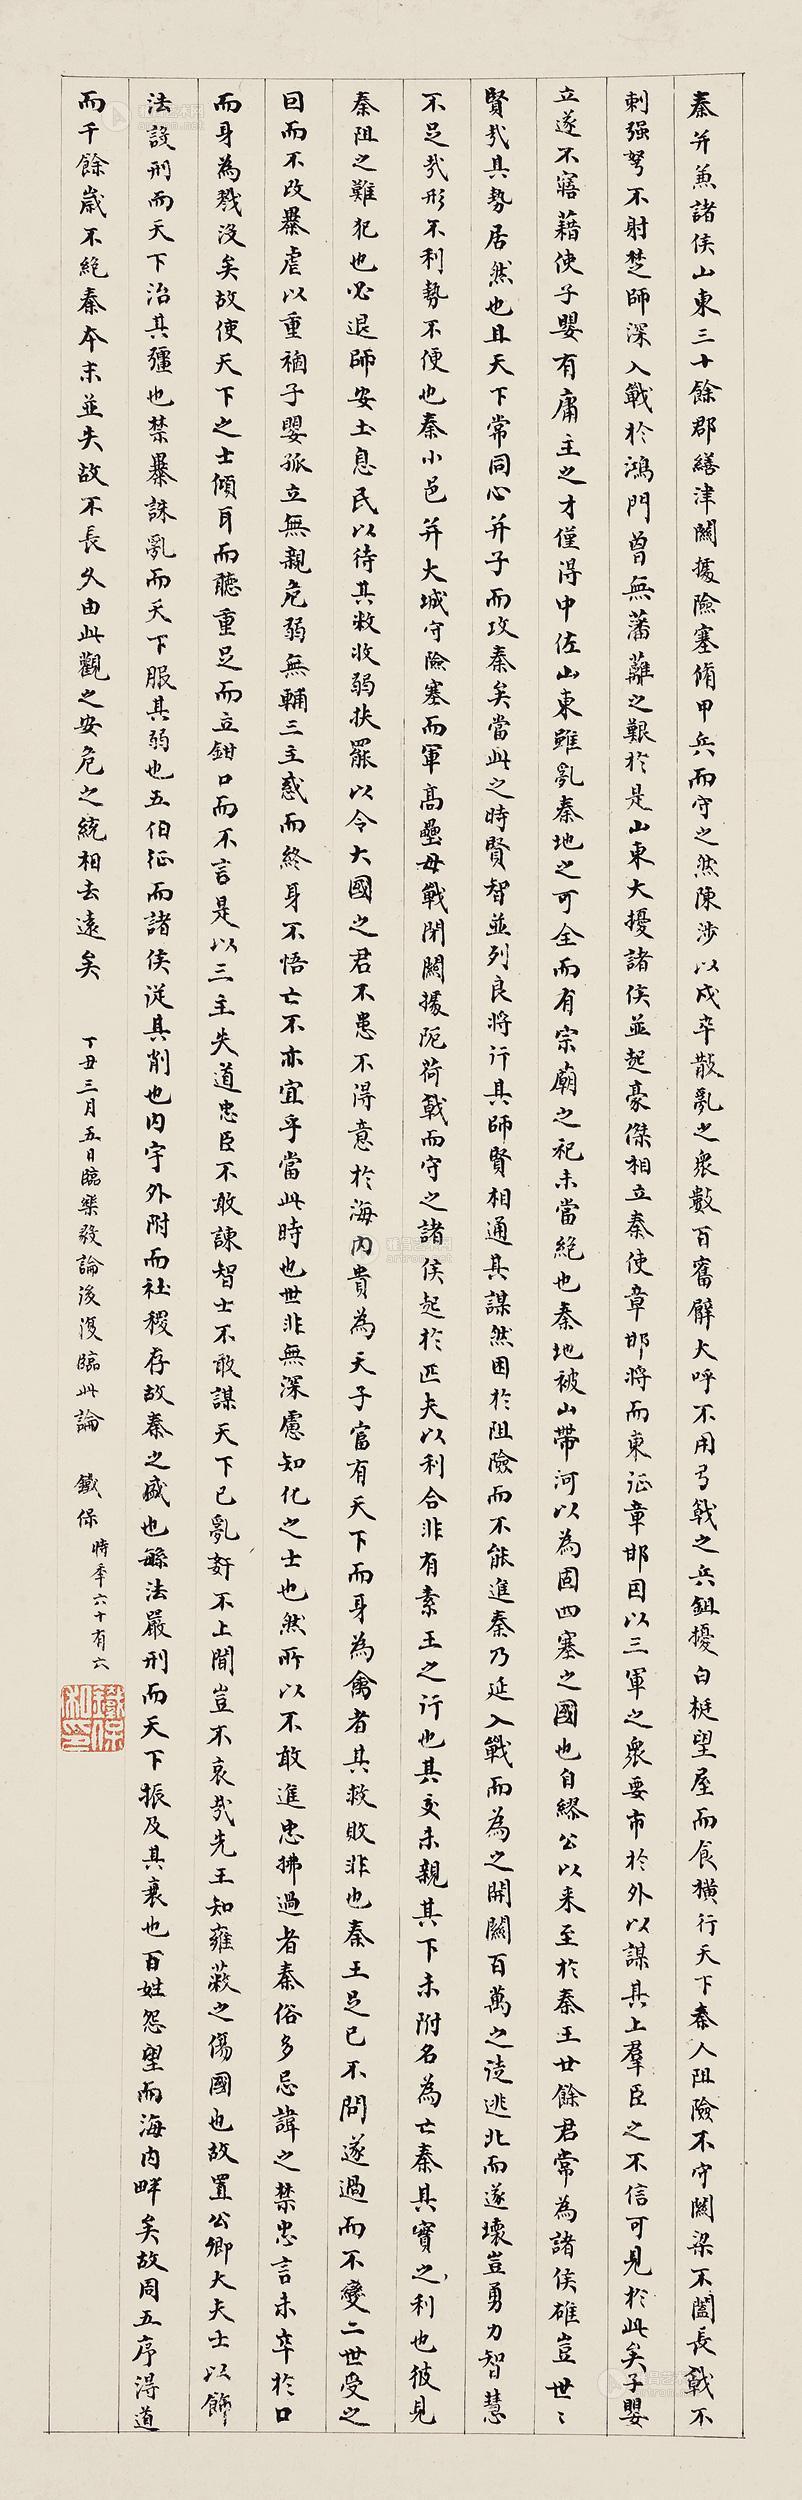 秦并兼諸侯山東三十餘郡繕津關據險塞脩甲兵而守之然陳涉以戍卒散亂之衆數百奮臂大呼不用弓戟之兵鉏擾白梃望屋而食橫行天下秦人阻險不守關梁不闔長戟不
刺强弩不射楚師深入戰於鴻門曾無藩蘺之艱於是山東大擾諸侯並起豪傑相立秦使章邯將而東征章邯因以三軍之衆要市於外以謀其上羣臣之不信可見於此矣子嬰
立遂不寤藉使子嬰有庸主之才僅得中佐山東雖亂秦地之可全而有宗廟之祀未當絕也秦地被山帶河以為固四塞之國也自繆公以来至於秦王廿餘君常為諸侯雄豈世〻
賢哉其勢居然也且天下常同心并子而攻秦矣當此之時賢智並列良將行其師賢相通其謀然困於阻險而不能進秦乃延入戰而為之開關百萬之徒逃北而遂壊豈勇力智慧
不足哉形不利勢不便也秦小邑并大城守險塞而軍高壘毋戰閉關據阨荷戟而守之諸侯起於匹夫以利合非有素王之行也其交未親其下未附名為亡秦其實之利也彼見
秦阻之難犯也必退師安土息民以待其救收弱扶罷以令大國之君不患不得意於海内貴為天子富有天下而身為禽者其救敗非也秦王足已不問遂過而不變二世受之
因而不改暴虐以重禍子嬰孤立無親危弱無輔三主惑而終身不悟亡不亦宜乎當此時也世非無深慮知化之士也然所以不敢進忠拂過者秦俗多忌諱之禁忠言未卒於口
而身為戮沒矣故使天下之士傾耳而聽重足而立鉗口而不言是以三主失道忠臣不敢諫智士不敢謀天下已亂姧不上聞豈不哀哉先王知雍蔽之傷國也故置公卿大夫士以飾
法設刑而天下治其彊也禁暴誅亂而天下服其弱也五伯征而諸侯從其削也内守外附而社稷存故秦之盛也緐法嚴刑而天下振及其衰也百姓怨望而海内畔矣故周五序得道
而千餘歲不絕秦本末並失故不長久由此觀之安危之統相去遠矣 丁丑三月五日臨樂毅論後復臨此論 鐵保時年六十有六